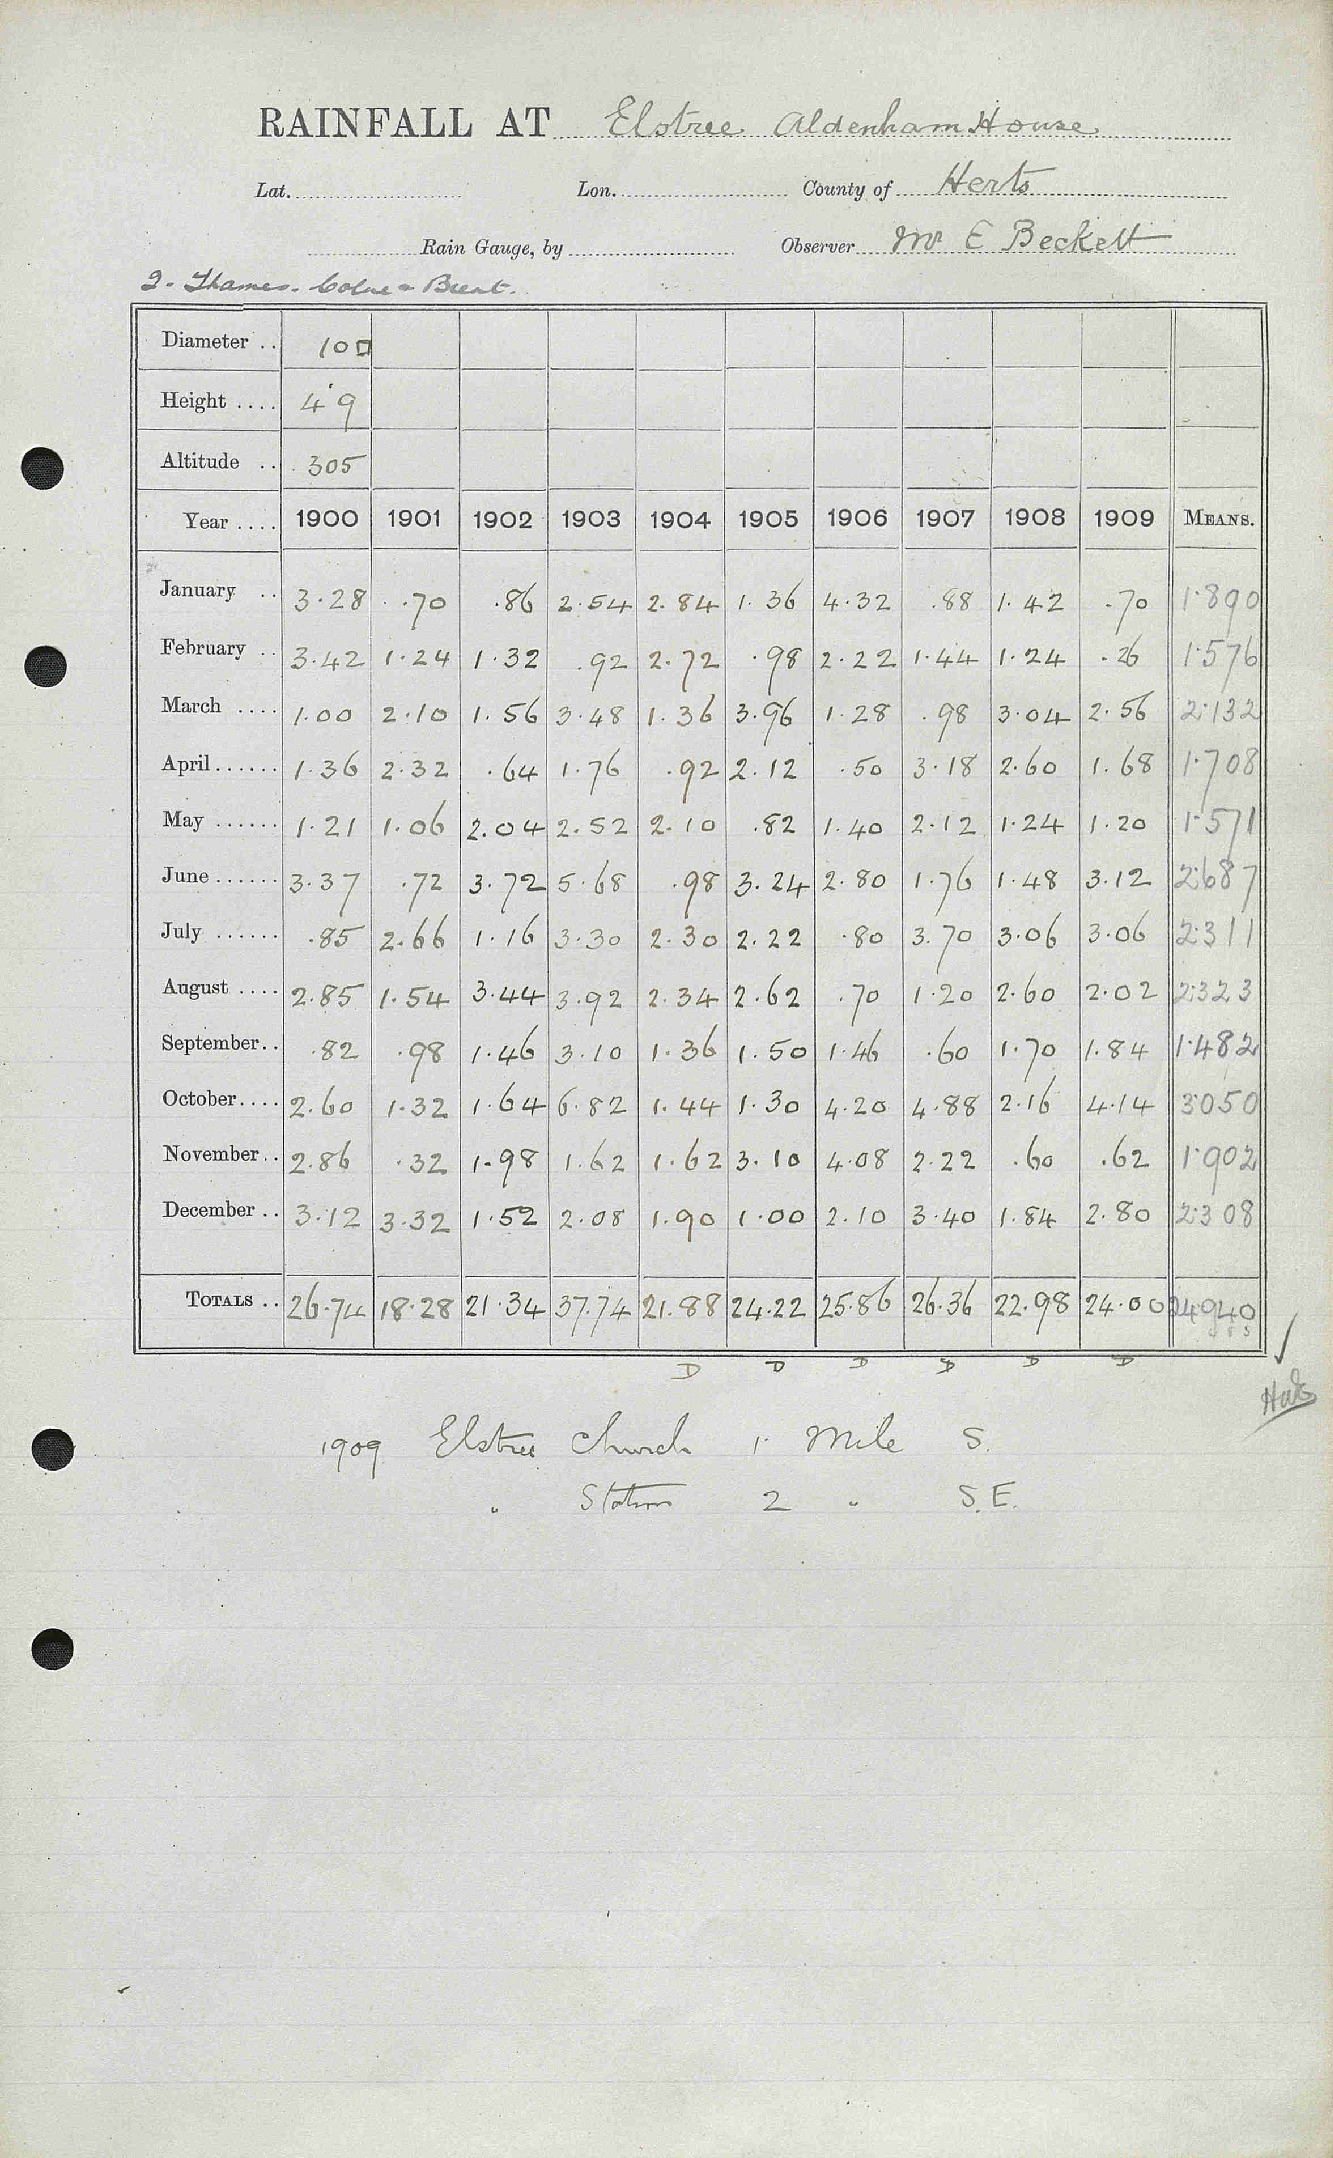 RAINFALL AT Elstree Aldenham House
Lat. Lon. County of Herts
Rain Gauge, by Observer Mr E Beckett
2. Thames. Colne & Brent.
Diameter .. 10□
Height .... 4' 9
Altitude .. 305
Year .... 1900 1901 1902 1903 1904 1905 1906 1907 1908 1909 MEANS.
January .. 3.28 .70 .86 2.54 2.84 1.36 4.32 .88 1.42 .70 1.890
February .. 3.42 1.24 1.32 .92 2.72 .98 2.22 1.44 1.24 .26 1.576
March .... 1.00 2.10 1.56 3.48 1.36 3.96 1.28 .98 3.04 2.56 2.132
April...... 1.36 2.32 .64 1.76 .92 2.12 .50 3.18 2.60 1.68 1.708
May ...... 1.21 1.06 2.04 2.52 2.10 .82 1.40 2.12 1.24 1.20 1.571
June...... 3.37 .72 3.72 5.68 .98 3.24 2.80 1.76 1.48 3.12 2.687
July ...... .85 2.66 1.16 3.30 2.30 2.22 .80 3.70 3.06 3.06 2.311
August .... 2.85 1.54 3.44 3.92 2.34 2.62 .70 1.20 2.60 2.02 2.323
September.. .82 .98 1.46 3.10 1.36 1.50 1.46 .60 1.70 1.84 1.482
October.... 2.60 1.32 1.64 6.82 1.44 1.30 4.20 4.88 2.16 4.14 3.050
November.. 2.86 .32 1.98 1.62 1.62 3.10 4.08 2.22 .60 .62 1.902
December .. 3.12 3.32 1.52 2.08 1.90 1.00 2.10 3.40 1.84 2.80 2.308
TOTALS .. 26.74 18.28 21.34 37.74 21.88 24.22 25.86 26.36 22.98 24.00 24.940
D D D D D D
1909 Elstree Church 1. Mile S.
" Station 2 " S.E.